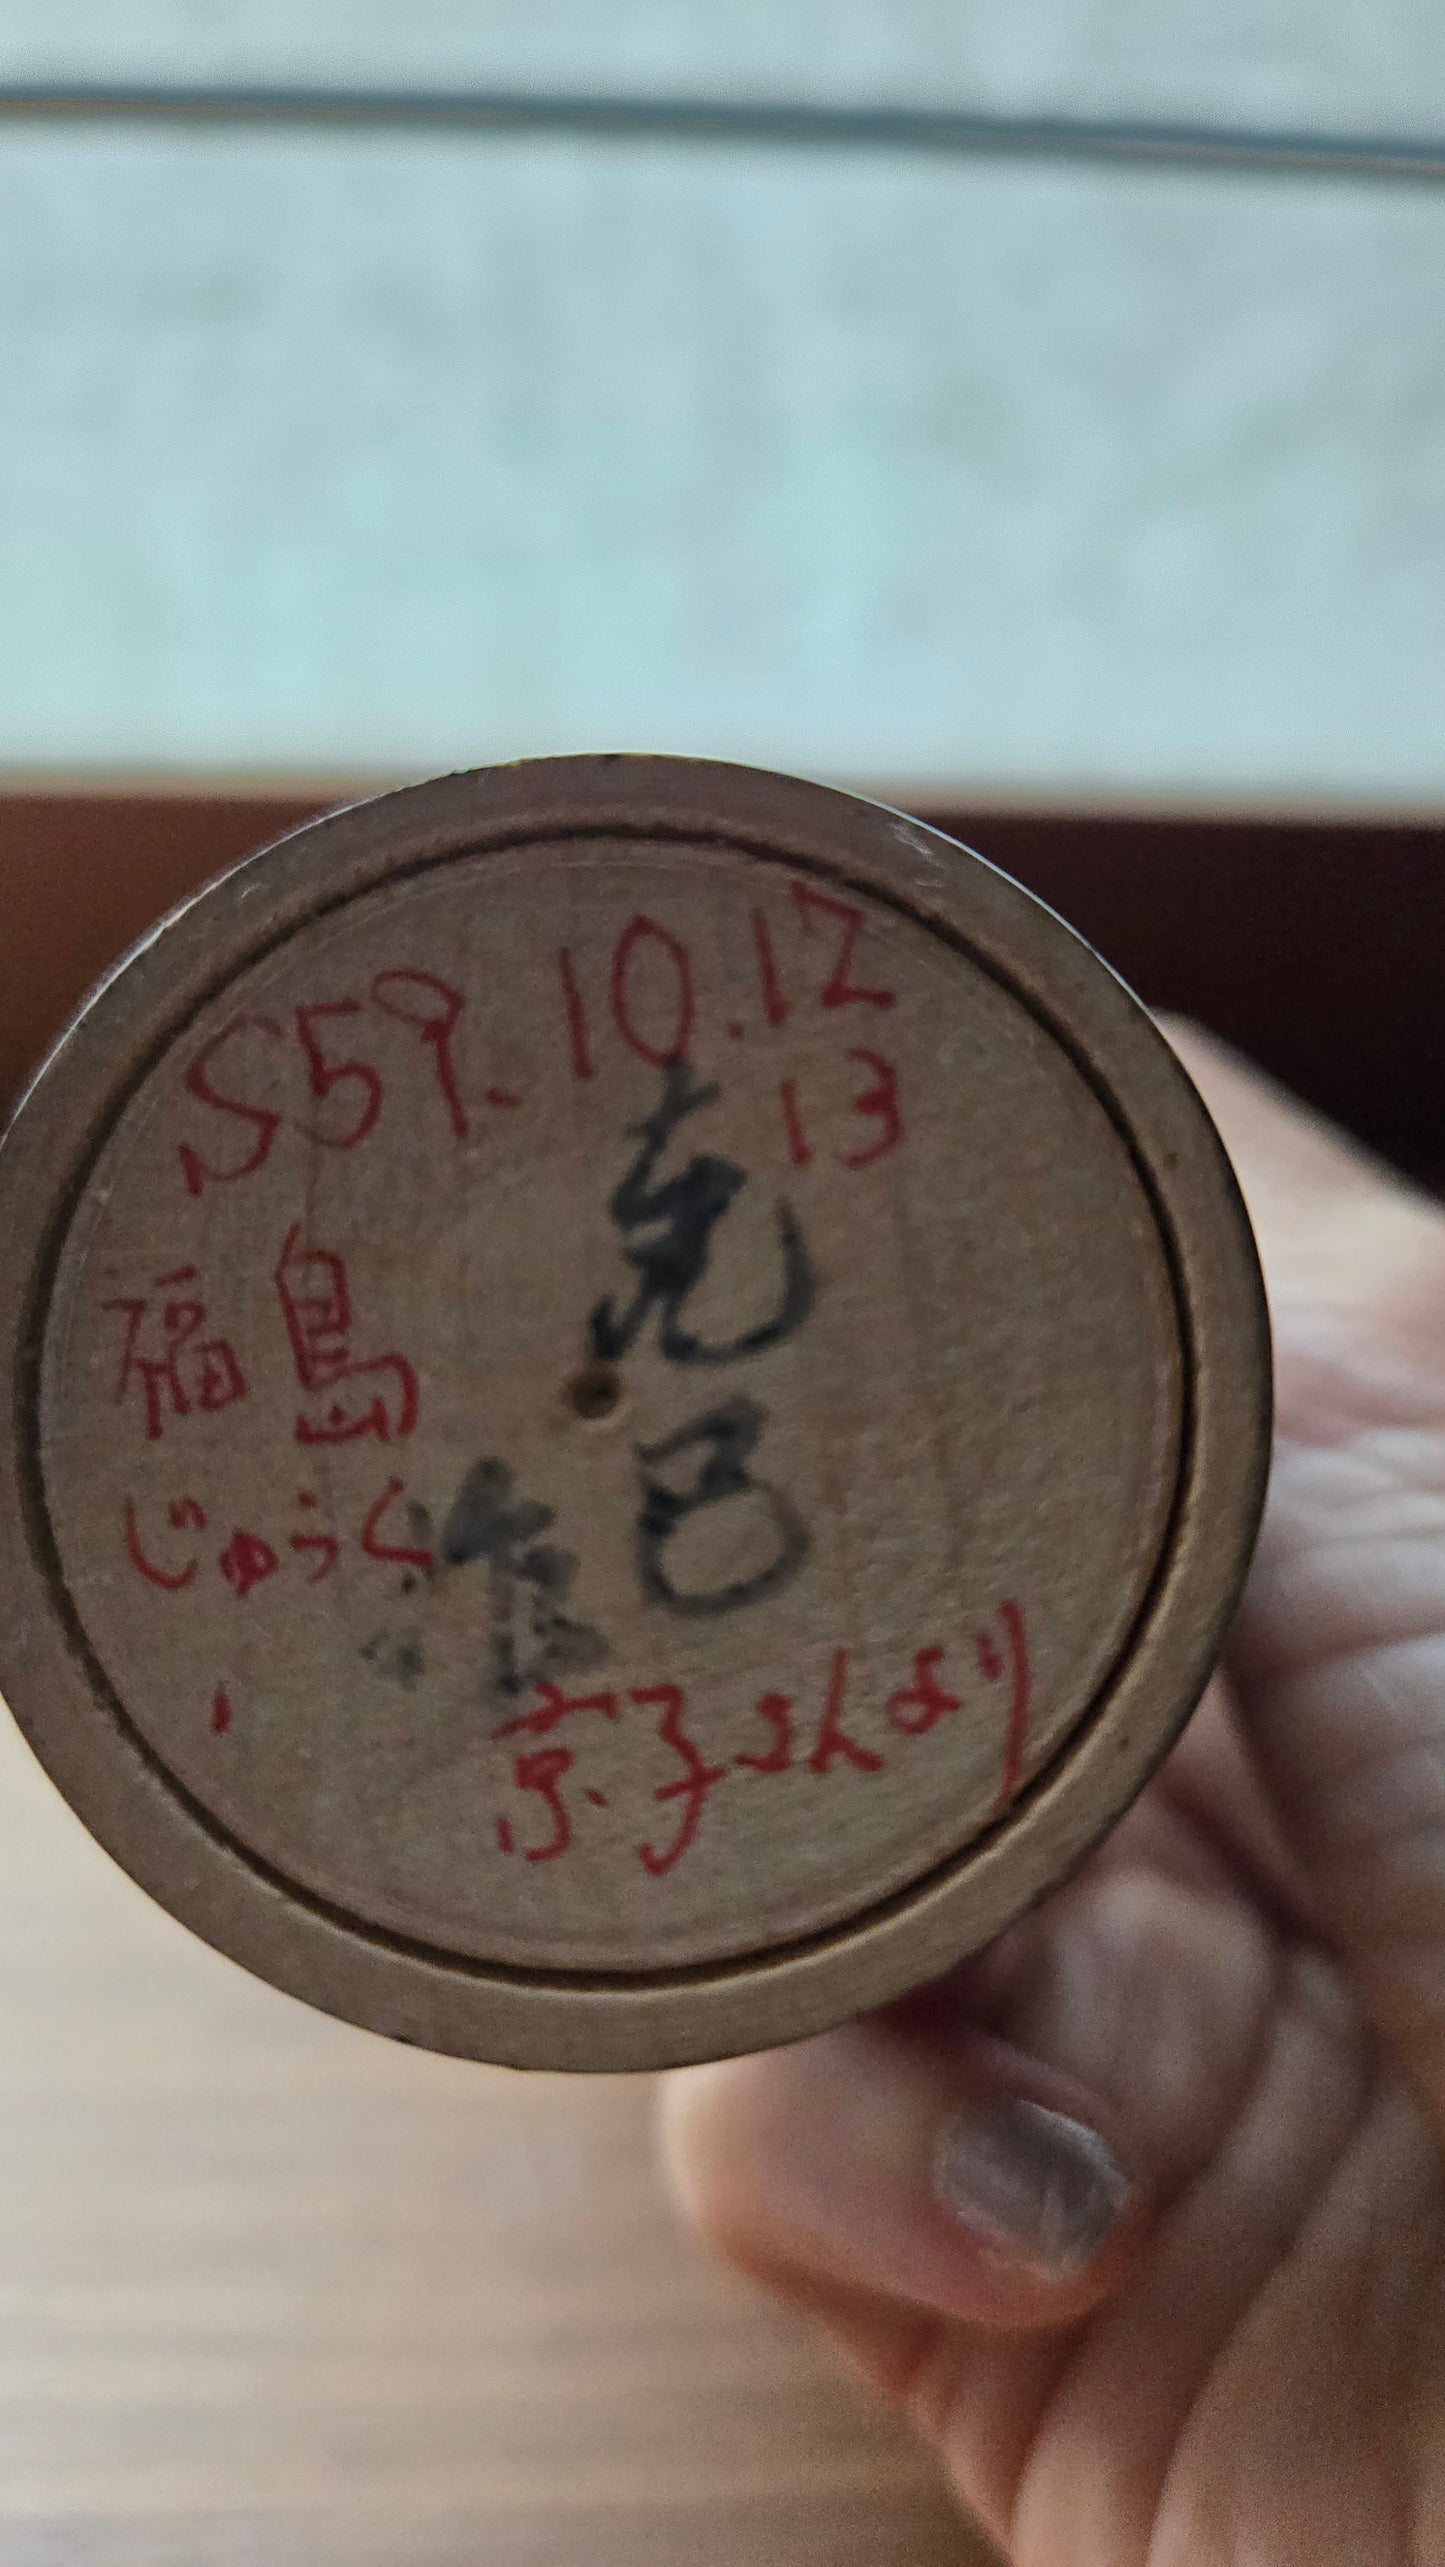 S59.10.12
13
福島
じゅらく
京子さんより